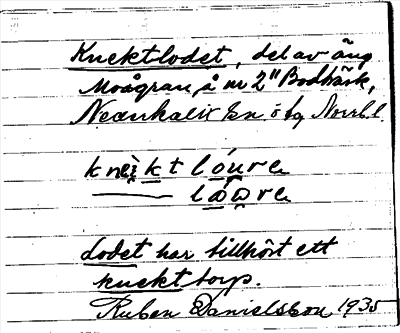 Knektlodet, del av äng
Moågran, å nr 2 " Bodträsk,
Nederkalix sn ö tg Norrb. l.
knèkt lóure
lówre
Lodet har tillhört ett
knekttorp.
Ruben Danielsson 1935